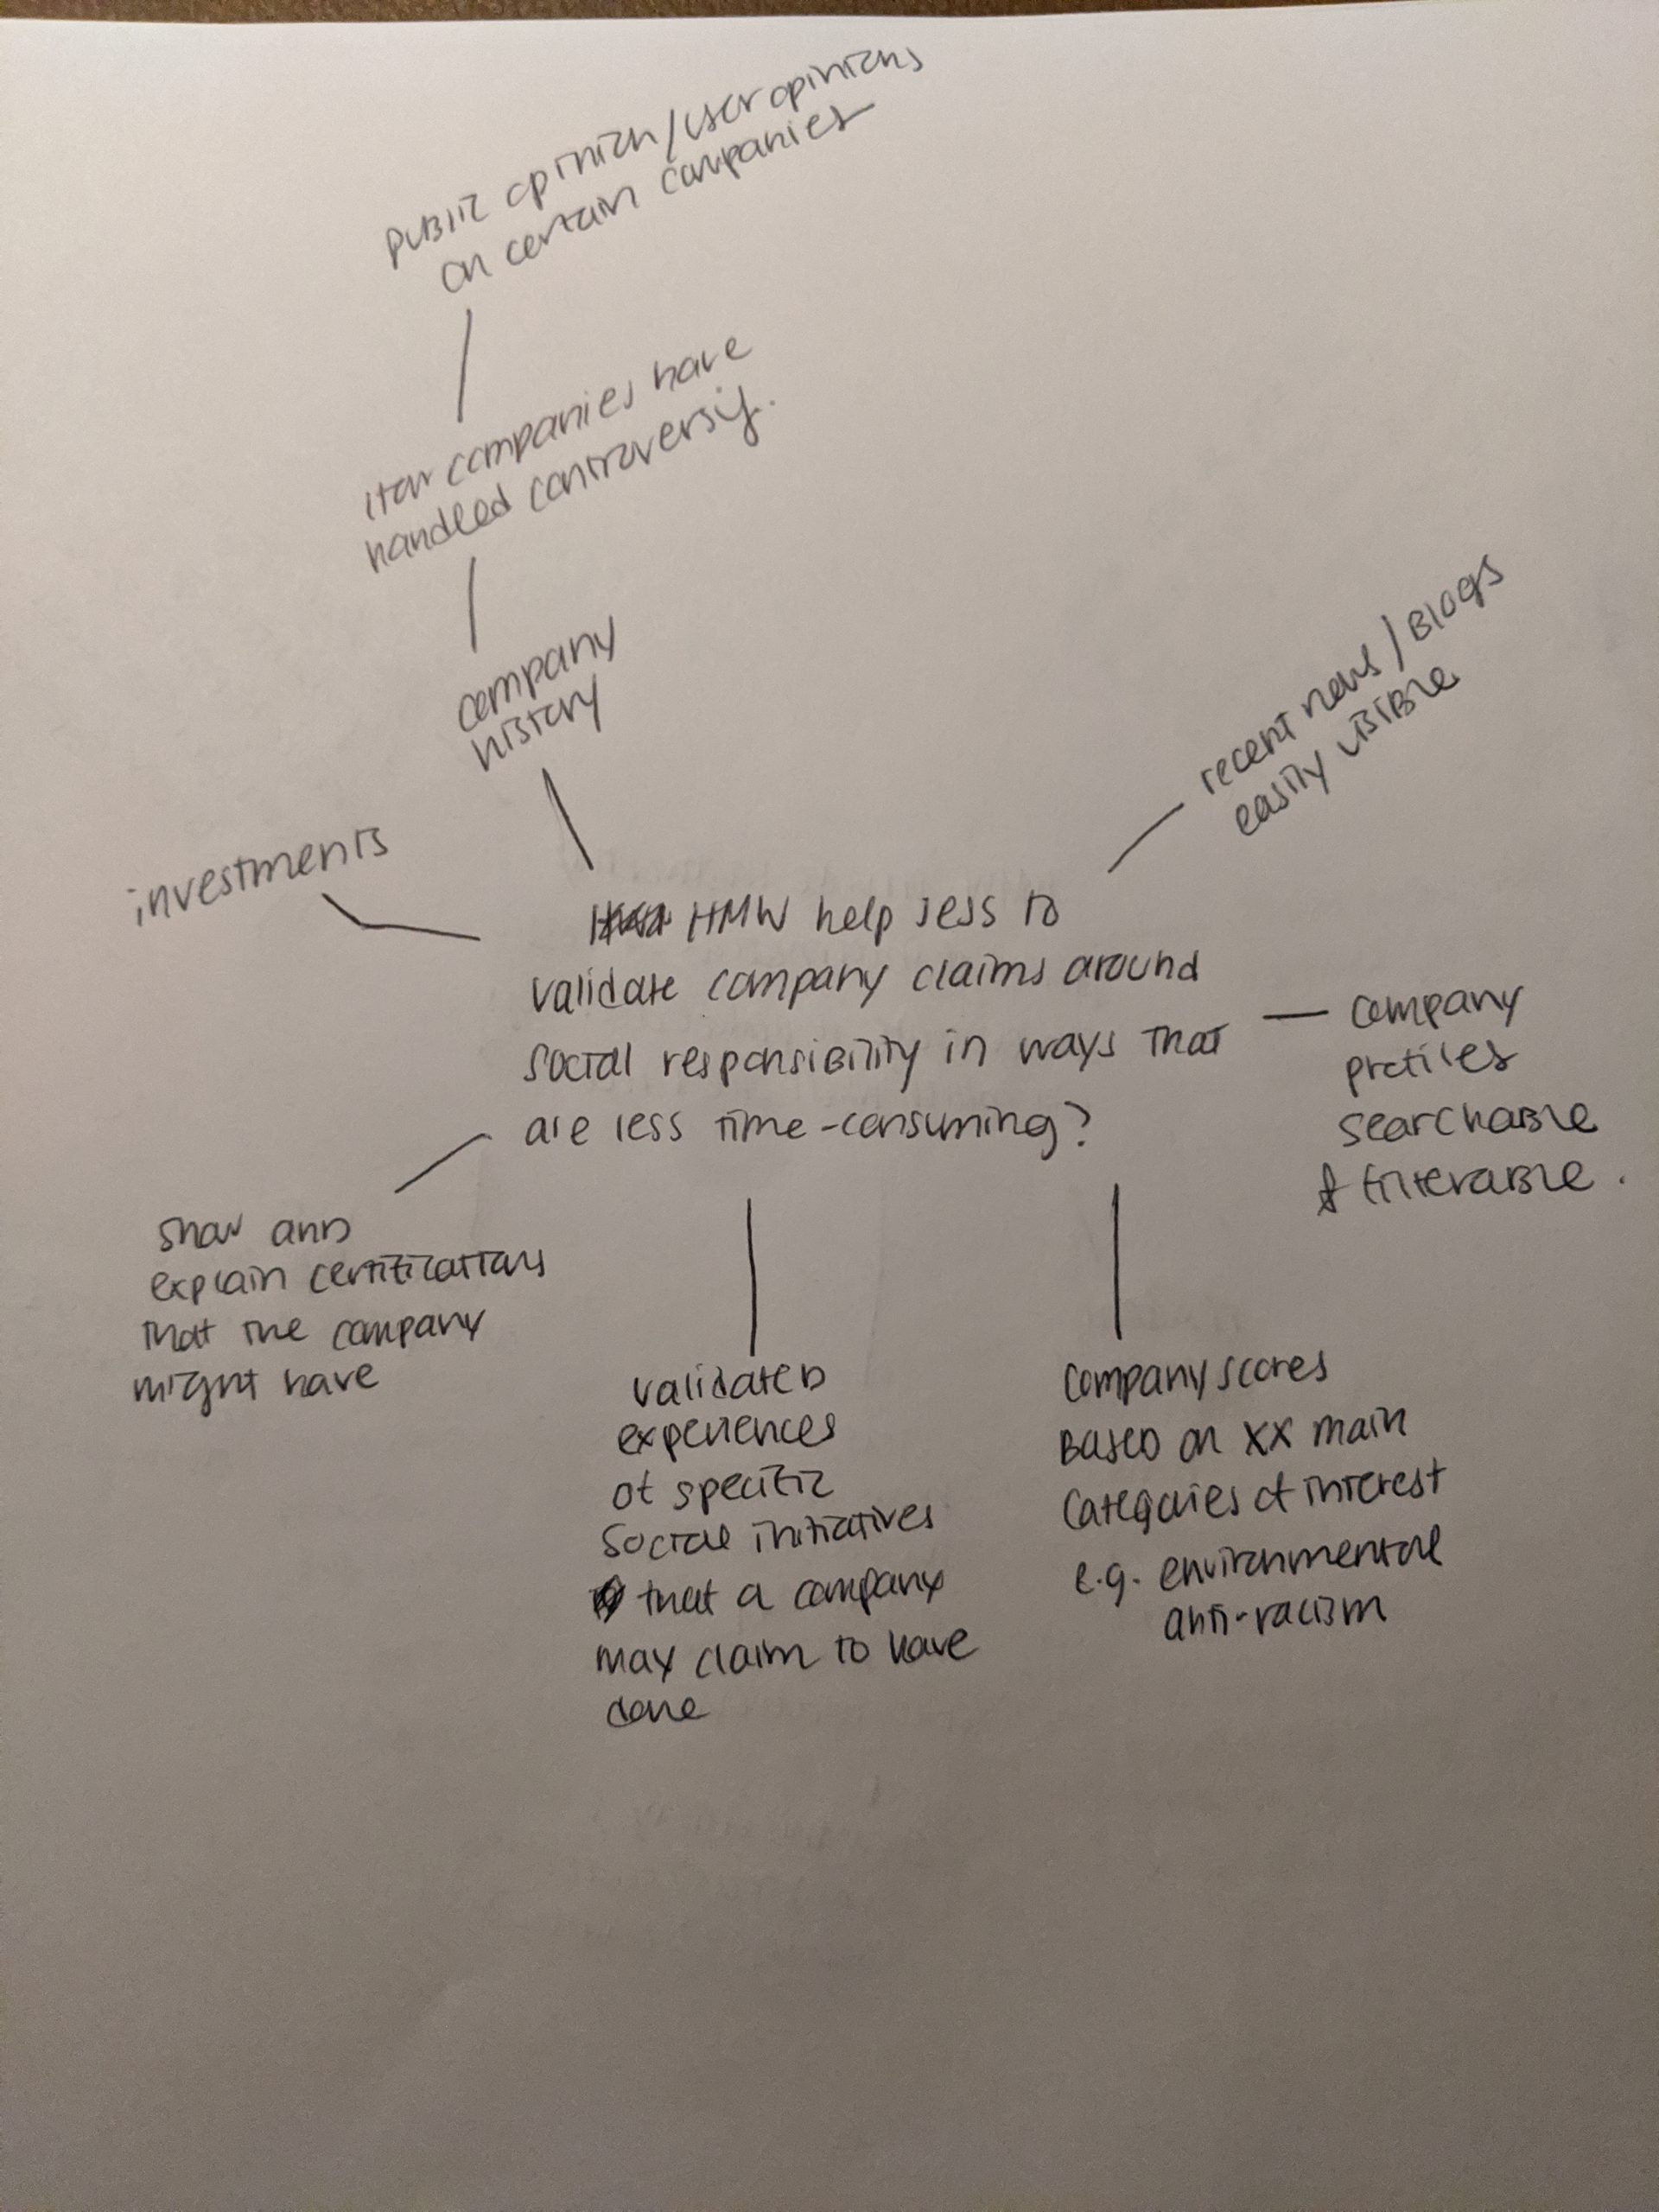 public opinion/user opinions
on certain companies
How companies have
handled controversy.
company
history
recent news/Blogs
easily visible
investments
HMW help Jess to
validate company claims around
social responsibility in ways that
are less time-consuming?
company
profiles
searchable
& filterable.
show and
explain certifications
that the company
might have
validated
experiences
of specific
social initiatives
that a company
may claim to have
done
company scores
Based on XX main
categories of interest
e.g. environmental
anti-racism